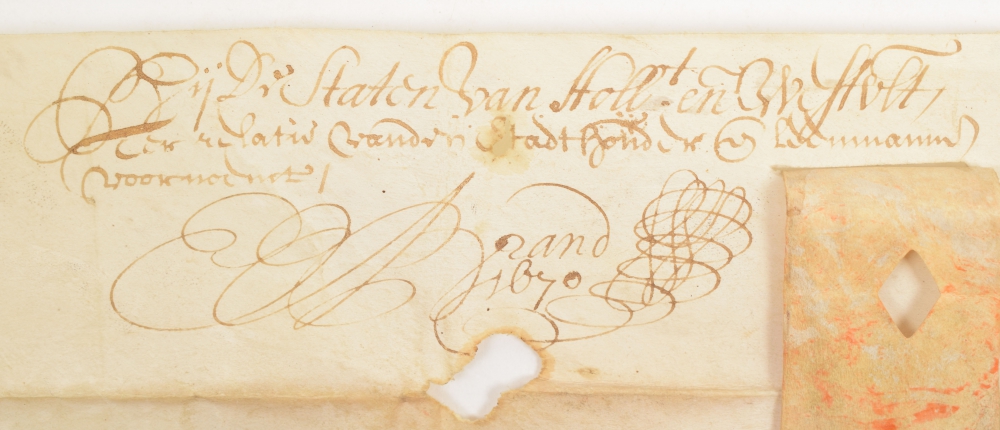 Bij De Staten van Holl.t en Westvlt,
Ter relatie vanden Stadthouder en Leenmannen
voornoemt /
Brand
1670